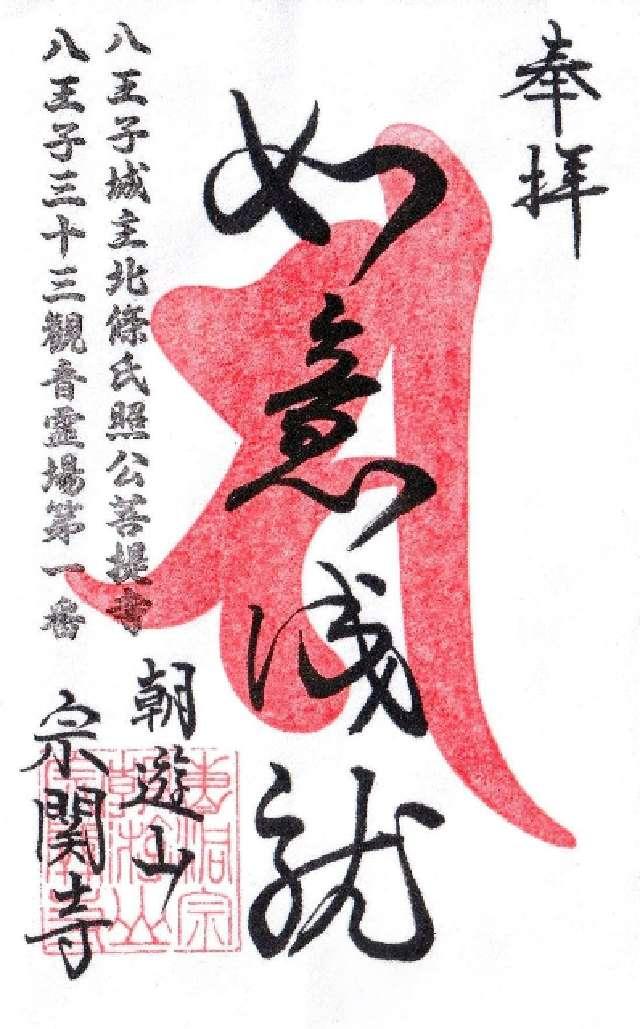 奉拝
如意成就
八王子城主北條氏照公菩提寺
八王子三十三觀音霊場第一番
朝遊山
宗関寺
曹洞宗
朝遊山
宗関寺